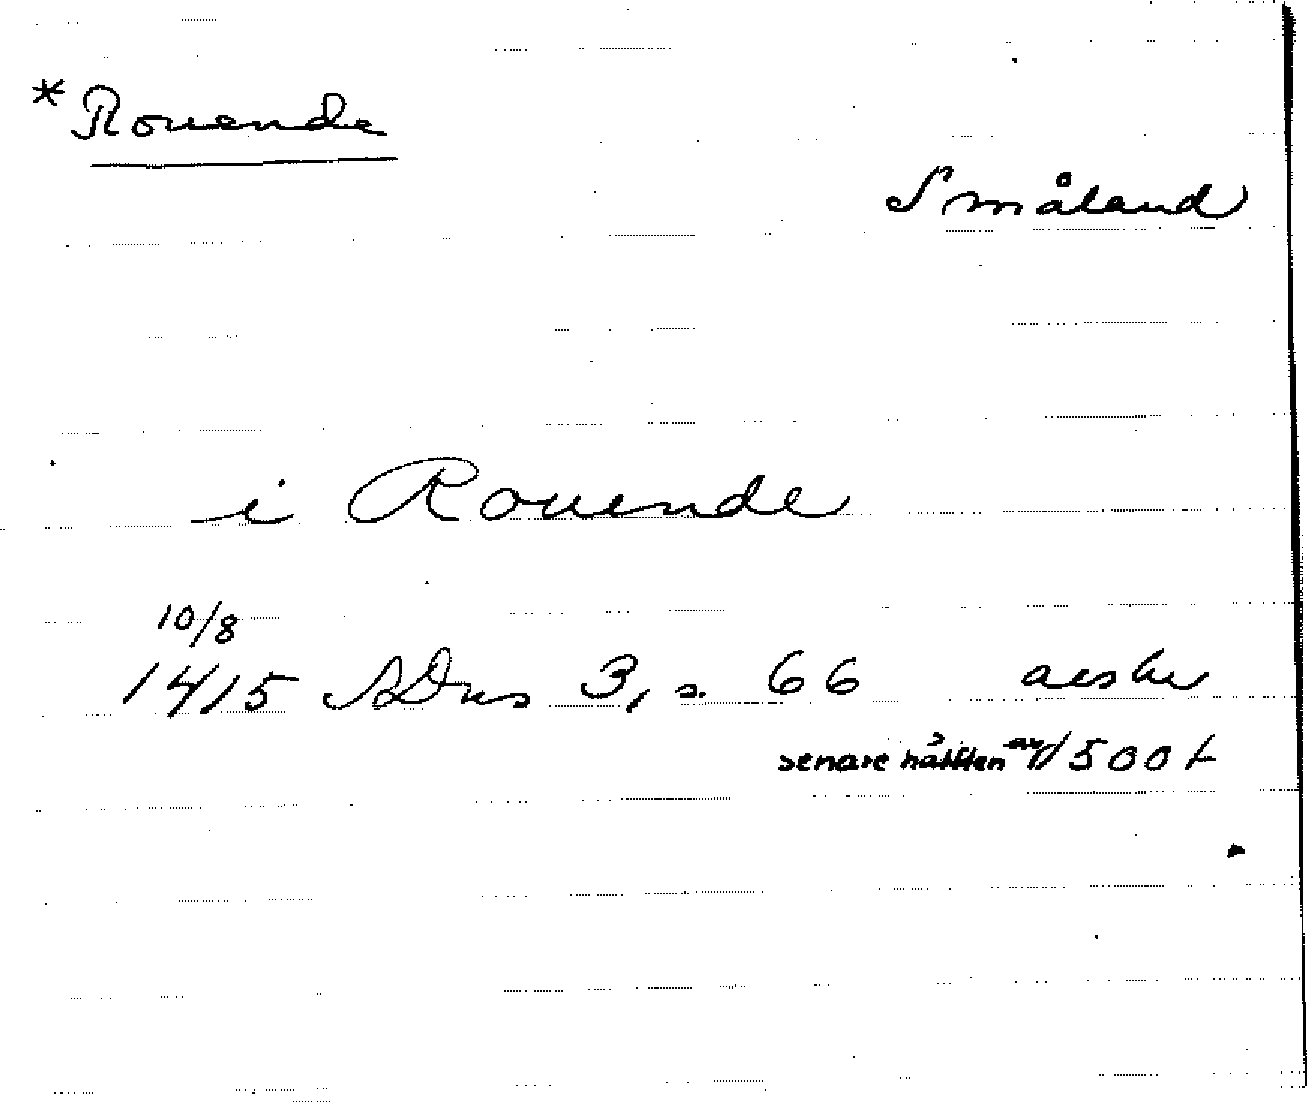 *Rouende
Småland
i Rouende
10/8
1415 SDns 3, s. 66
senare hälften av 1500t